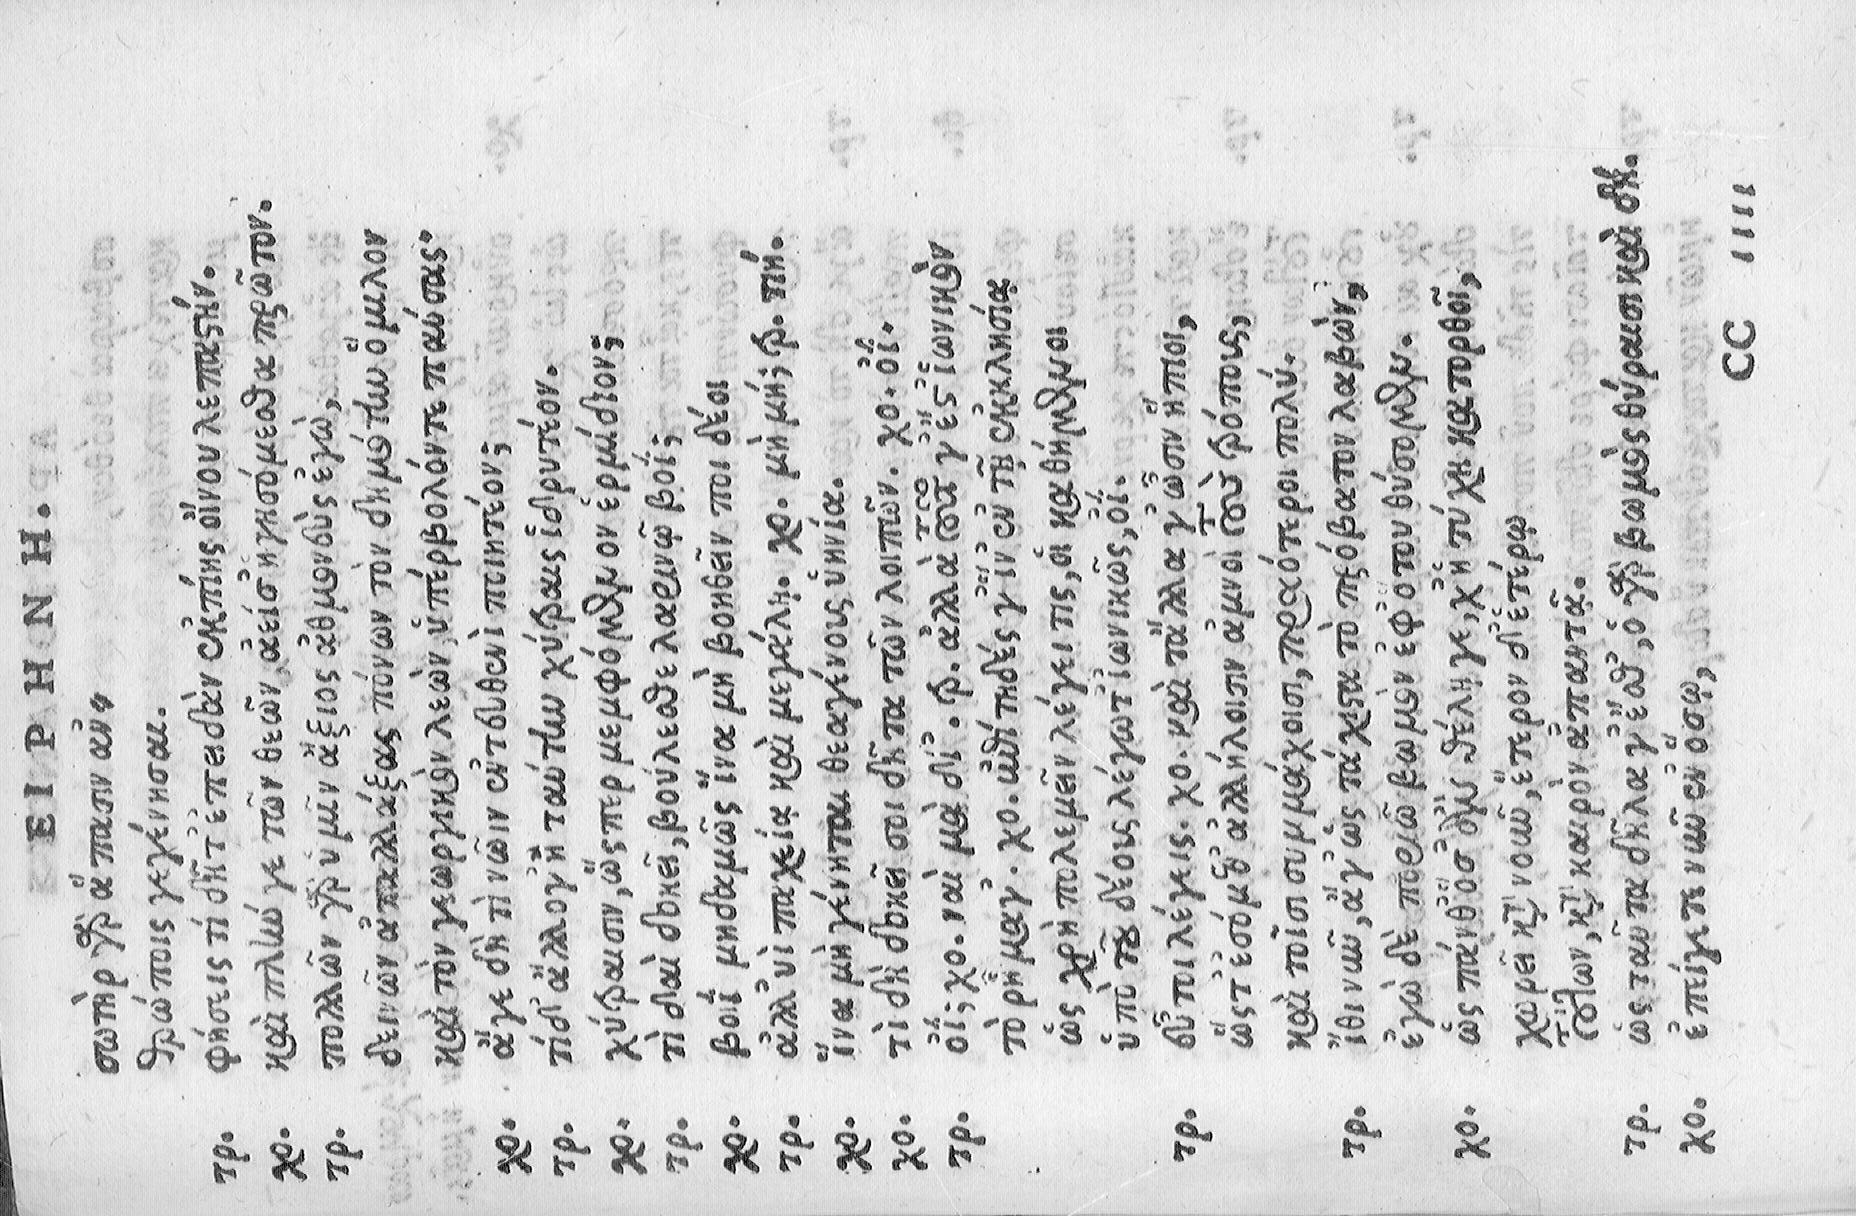 ΕΙΡΗΝΗ.
σωτὴρ γὰρ ἅπασιν ἀν
θρώποις γεγένησαι.
τρ. φήσεις τί δῆτ' ἐπειδὰν ἐκπίῃς οἴνου λεπαστήν.
χο. καὶ πλήν γε τῶν θεῶν, ἀεί σ' ἡγησόμεσθα πρῶτον.
τρ. πολλῶν γὰρ ὑμῖν ἄξιος ἀθμονοὺς ἐγὼ,
δεινῶν ἀπαλλάξας πόνων τὸν δημότην ὅμιλον
καὶ τὸν γεωργικὸν λεὼν, ὑπέρβολόν τε παύσας.
χο. ἄγε δὴ τὶ νῶιν ἐντευθενὶ ποιητέον;
τρ. τί δ' ἄλλο γ' ἢ ταύτην χύτραις ἱδρυτέον.
χο. χύτραισιν, ὥσπερ μεμφόμενον ἑρμίδιον;
τρ. τὶ δαὶ δοκεῖ, βούλεσθε λαρινῷ βοΐ;
χο. βοΐ μηδαμῶς ἵνα μὴ βοηθεῖν ποι δέοι
τρ. ἀλλ' ὑὶ παχείᾳ καὶ μεγάλῃ. χο. μὴ μή; τρ. τιή.
χο. ἵνα μὴ γένηται θεαγένους ὑηνία.
χο. τὶ δὴ δοκεῖ σοι δῆτα τῶν λοιπῶν. χο. ὀΐ.
τρ. ὀΐ; χο. ναὶ μὰ δί'. τρ. ἀλλὰ τοῦτό γ' ἔστ' ἰωνικὸν
τὸ ῥῆμαγ'. χο. ἐπίτηδές γ' ἵν' ἐν τῇ ἐκκλησίᾳ
ὡς χρὴ πολεμεῖν λέγει τις, οἱ καθήμενοι
ὑπὸ τοῦ δέους λέγωτ' ἰωνικῶς, ὀΐ.
τρ. εὖ τοι λέγεις. χο. καὶ τἄλλα γ' ὦσιν ἤπιοι,
ὥστ' ἐσόμεθ' ἀλλήλοισιν ἀμνοὶ τοὺς τρόπους,
καὶ τοῖσι συμμάχοισι, πραότεροι πολύ.
τρ. ἴθι νῦν, ἄγ' ὡς τάχιστα τὸ πρόβατον λαβὼν,
ἐγὼ δὲ ποριῶ βωμὸν ἐφ' ὅτου θύσομεν.
χο. ὡς πάνθ' ὅσ' ἂν θεὸς θέλῃ γε, χἠ τύχη κατορθοῖ,
χωρεῖ κατὰ νοῦν, ἕτερον δ' ἑτέρῳ
τούτων, κατὰ καιρὸν ἀπαντᾷ.
τρ. ὡς ταῦτα δῆλα γ' ἔσθ', ὁ γὰρ βωμὸς θύρασι καὶ δή.
χο. ἐπείγετε νῦν ἐν ὅσῳ,
CC ιιιι